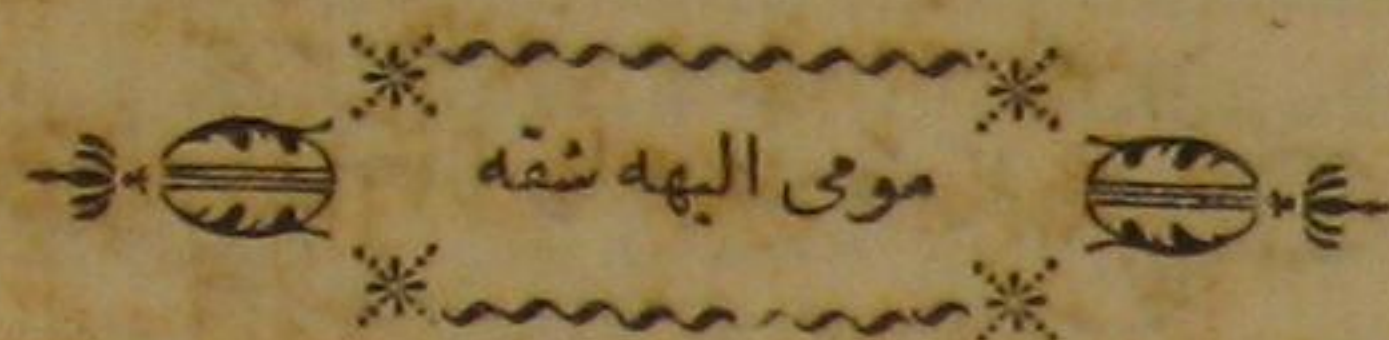 مومى اليهه شقه